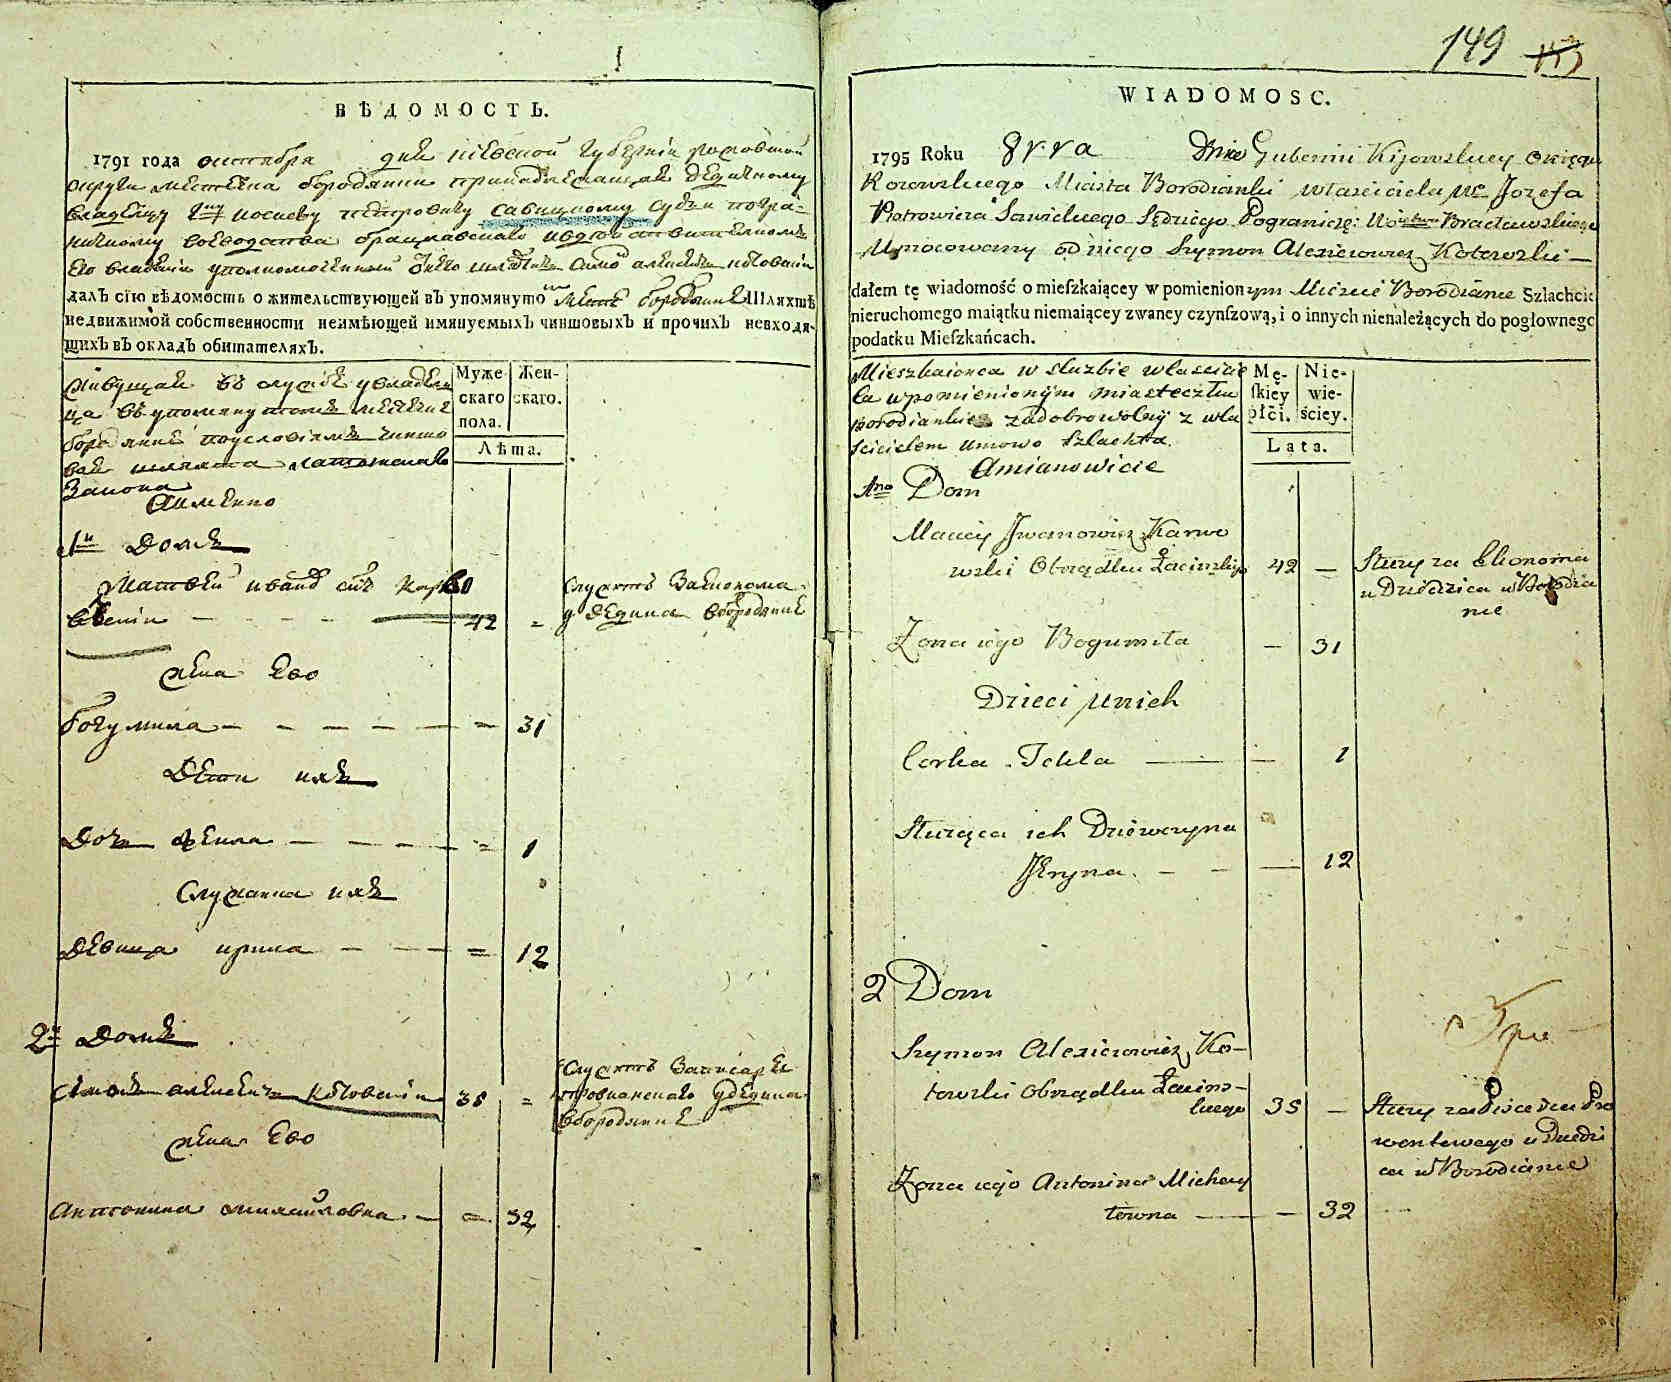 1
ВѢДОМОСТЬ.
1791 года октября дня Киевской Губернии
округи местечка бородянки принадлежащаго дедичному
владелцу Iосиеву петровичу савицкому судьи погра-
ничному воеводства брацлавскаго
его владения уполномоченный от него шляхтичь алексеевъ котовскiй
далъ сiю вѣдомость о жительствующей въ упомянуто местечке бородянке Шляхтѣ
недвижимой собственности неимѣющей имянуемыхъ чиншовыхъ и прочихъ невходя-
щихъ въ окладъ обитателяхъ.
живущая въ службе у владелца
въ упомянутомъ местечке
бородянке по условiямъ чиншо
вая шляхта латинскаго
Закона
Аименно
Муже-
скаго
пола.
Жен-
скаго.
Лѣта.
1й Домъ
Матвей иванов сынъ Карво
вскiй - - - 42 =
Служитъ Заеконома
у дедича вбородянке
жена Ево
богумила - - - - = 31
Дети ихъ
Дочь фекла - - - = 1
Служанка ихъ
девица ирина - - - = 12
2й Домъ
алексеевичь котовскiй 35 =
Служитъ Записаря
провианскаго удедича
вбородянке
жена Ево
Антонина михайловна - = 32
149
WIADOMOSC.
1795 Roku 8r. ra Dnia Gubernii Kijowskiey Okręgu
Miasta Borodianki właściciela Jozefa
Piotrowicza Sawickiego Sędziego Pogranicz: Bracławskiego
Umocowany od niego Szymon Alexieiewicz Kotowski —
dałem tę wiadomość o mieſzkaiącey w pomienionym Mieście Borodiance Szlachcie
nieruchomego maiątku niemaiącey zwaney czynſzową, i o innych nienależących do pogłownego
podatku Mieſzkańcach.
Mieszkaiąca w służbie właścicie
la w pomienionym miasteczku
Borodiankie za dobrowolny z wła
ścicielem umowo szlachta.
Amianowicie
Mę-
ſkiey
płći.
Nie-
wie-
ściey.
Lata.
1mo Dom
Maciey Iwanowicz Karwo
wski Obrządku Łacinskiego 42 —
Służy za Ekonoma
u Dziedzica w Borodia
nce
Zona iego Bogumiła — 31
Dzieci u nich
Corka Tekla — — 1
Służąca ich Dziewczyna
Iryna. - - — 12
2 Dom
Szymon Alexieiewicz Ko-
towski Obrządku Łacins-
kiego 35 —
Służy za Pisarza Pro
wentowego u Dziedzi
ca w Borodiance
Zona iego Antonina Michay
łowna — — 32